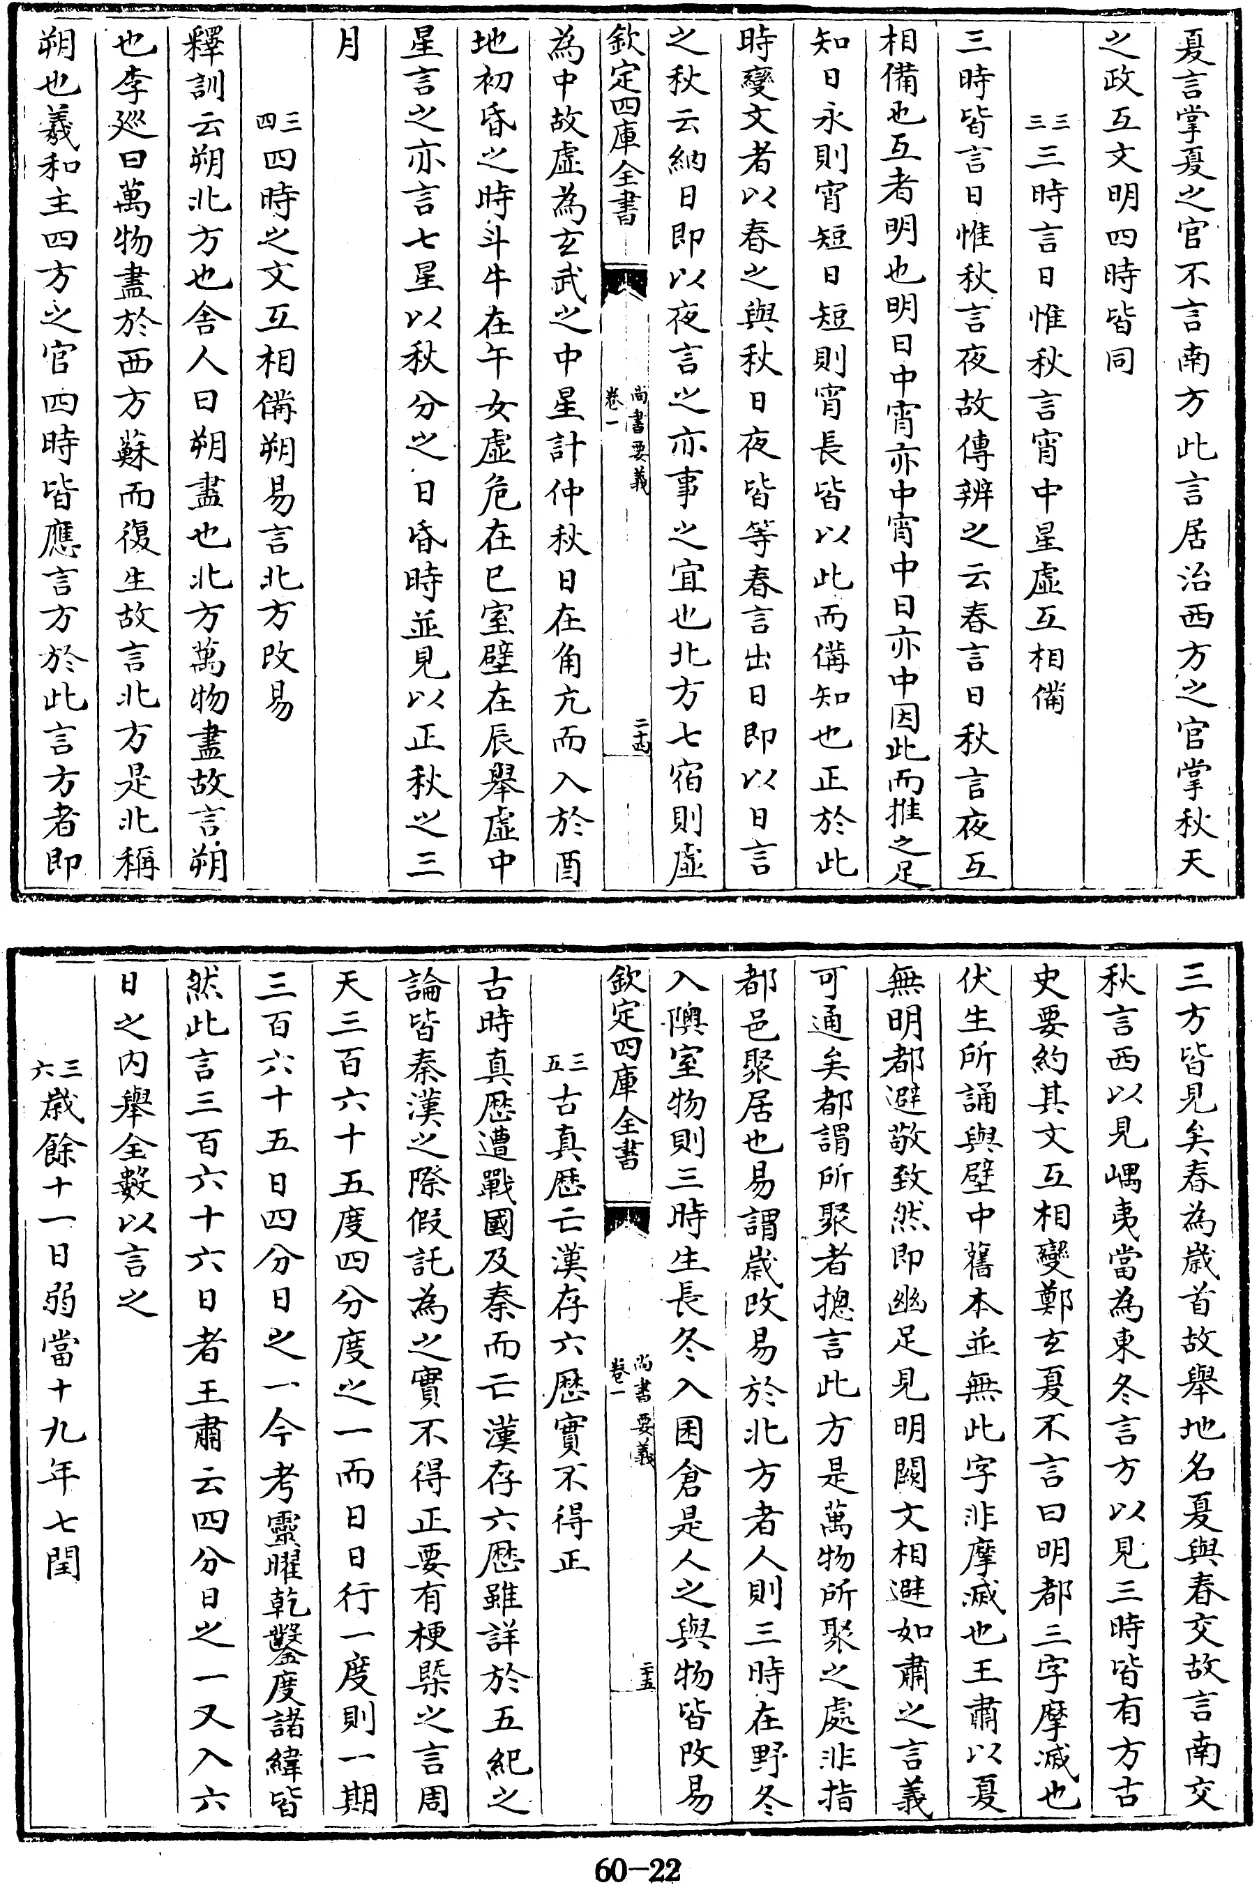 夏言掌夏之官不言南方此言居治西方之官掌秋天
之政互文明四時皆同
三三三時言日惟秋言宵中星虛互相備
三時皆言日惟秋言夜故傳辨之云春言日秋言夜互
相備也互者明也明日中宵亦中宵中日亦中因此而推之足
知日永則宵短日短則宵長皆以此而備知也正於此
時變文者以春之與秋日夜皆等春言出日即以日言
之秋云納日即以夜言之亦事之宜也北方七宿則虛
欽定四庫全書
尚書要義
卷一
二十四
為中故虛為玄武之中星計仲秋日在角亢而入於酉
地初昏之時斗牛在午女虛危在巳室壁在辰舉虛中
星言之亦言七星以秋分之日昏時並見以正秋之三
月
三四四時之文互相備朔易言北方改易
釋訓云朔北方也舍人曰朔盡也北方萬物盡故言朔
也李巡曰萬物盡於西方蘇而復生故言北方是北稱
朔也羲和主四方之官四時皆應言方於此言方者即
三方皆見矣春為歲首故舉地名夏與春交故言南交
秋言西以見嵎夷當為東冬言方以見三時皆有方古
史要約其文互相變鄭玄夏不言曰明都三字摩滅也
伏生所誦與壁中舊本並無此字非摩滅也王肅以夏
無明都避敬致然即幽足見明闕文相避如肅之言義
可通矣都謂所聚者摠言此方是萬物所聚之處非指
都邑聚居也易謂歲改易於北方者人則三時在野冬
入隩室物則三時生長冬入囷倉是人之與物皆改易
欽定四庫全書
尚書要義
卷一
二十五
三五古真歷亡漢存六歷實不得正
古時真歷遭戰國及秦而亡漢存六歷雖詳於五紀之
論皆秦漢之際假託為之實不得正要有梗槩之言周
天三百六十五度四分度之一而日日行一度則一期
三百六十五日四分日之一今考靈曜乾鑿度諸緯皆
然此言三百六十六日者王肅云四分日之一又入六
日之內舉全數以言之
三六歲餘十一日弱當十九年七閏
60-22